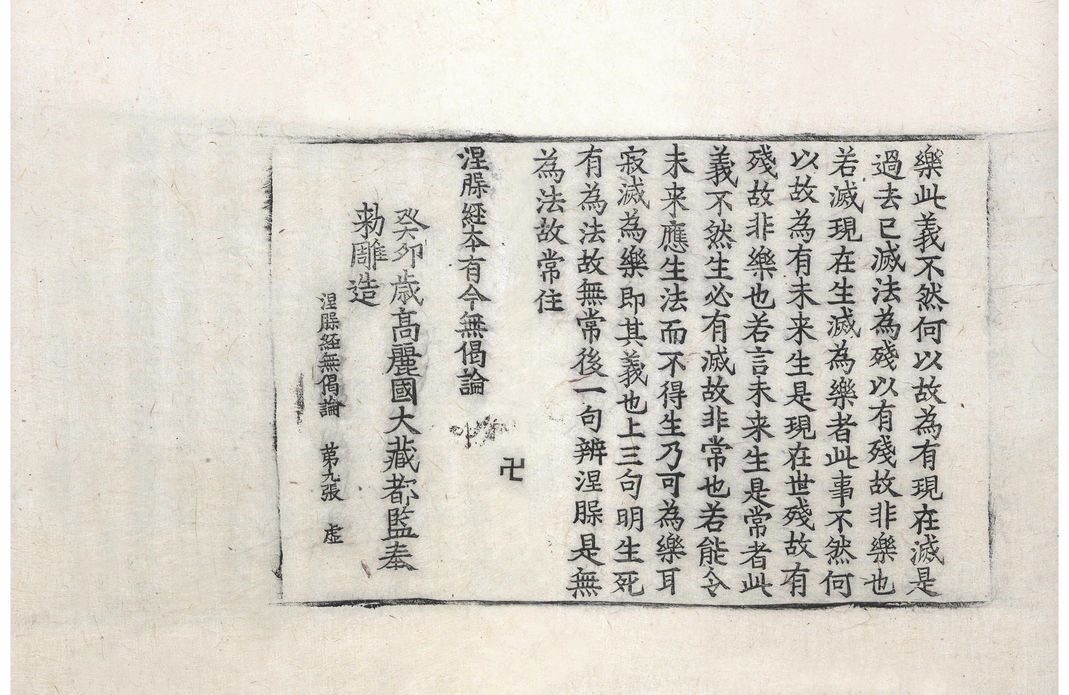 樂此義不然何以故為有現在滅是
過去已滅法為殘以有殘故非樂也
若滅現在生滅為樂者此事不然何
以故為有未来生是現在世殘故有
殘故非樂也若言未来生是常者此
義不然生必有滅故非常也若能令
未来應生法而不得生乃可為樂耳
寂滅為樂即其義也上三句明生死
有為法故無常後一句辨涅槃是無
為法故常住
卍
涅槃經本有今無偈論
癸卯歳高麗國大藏都監奉
勑雕造
涅槃經無偈論 第九張 虛